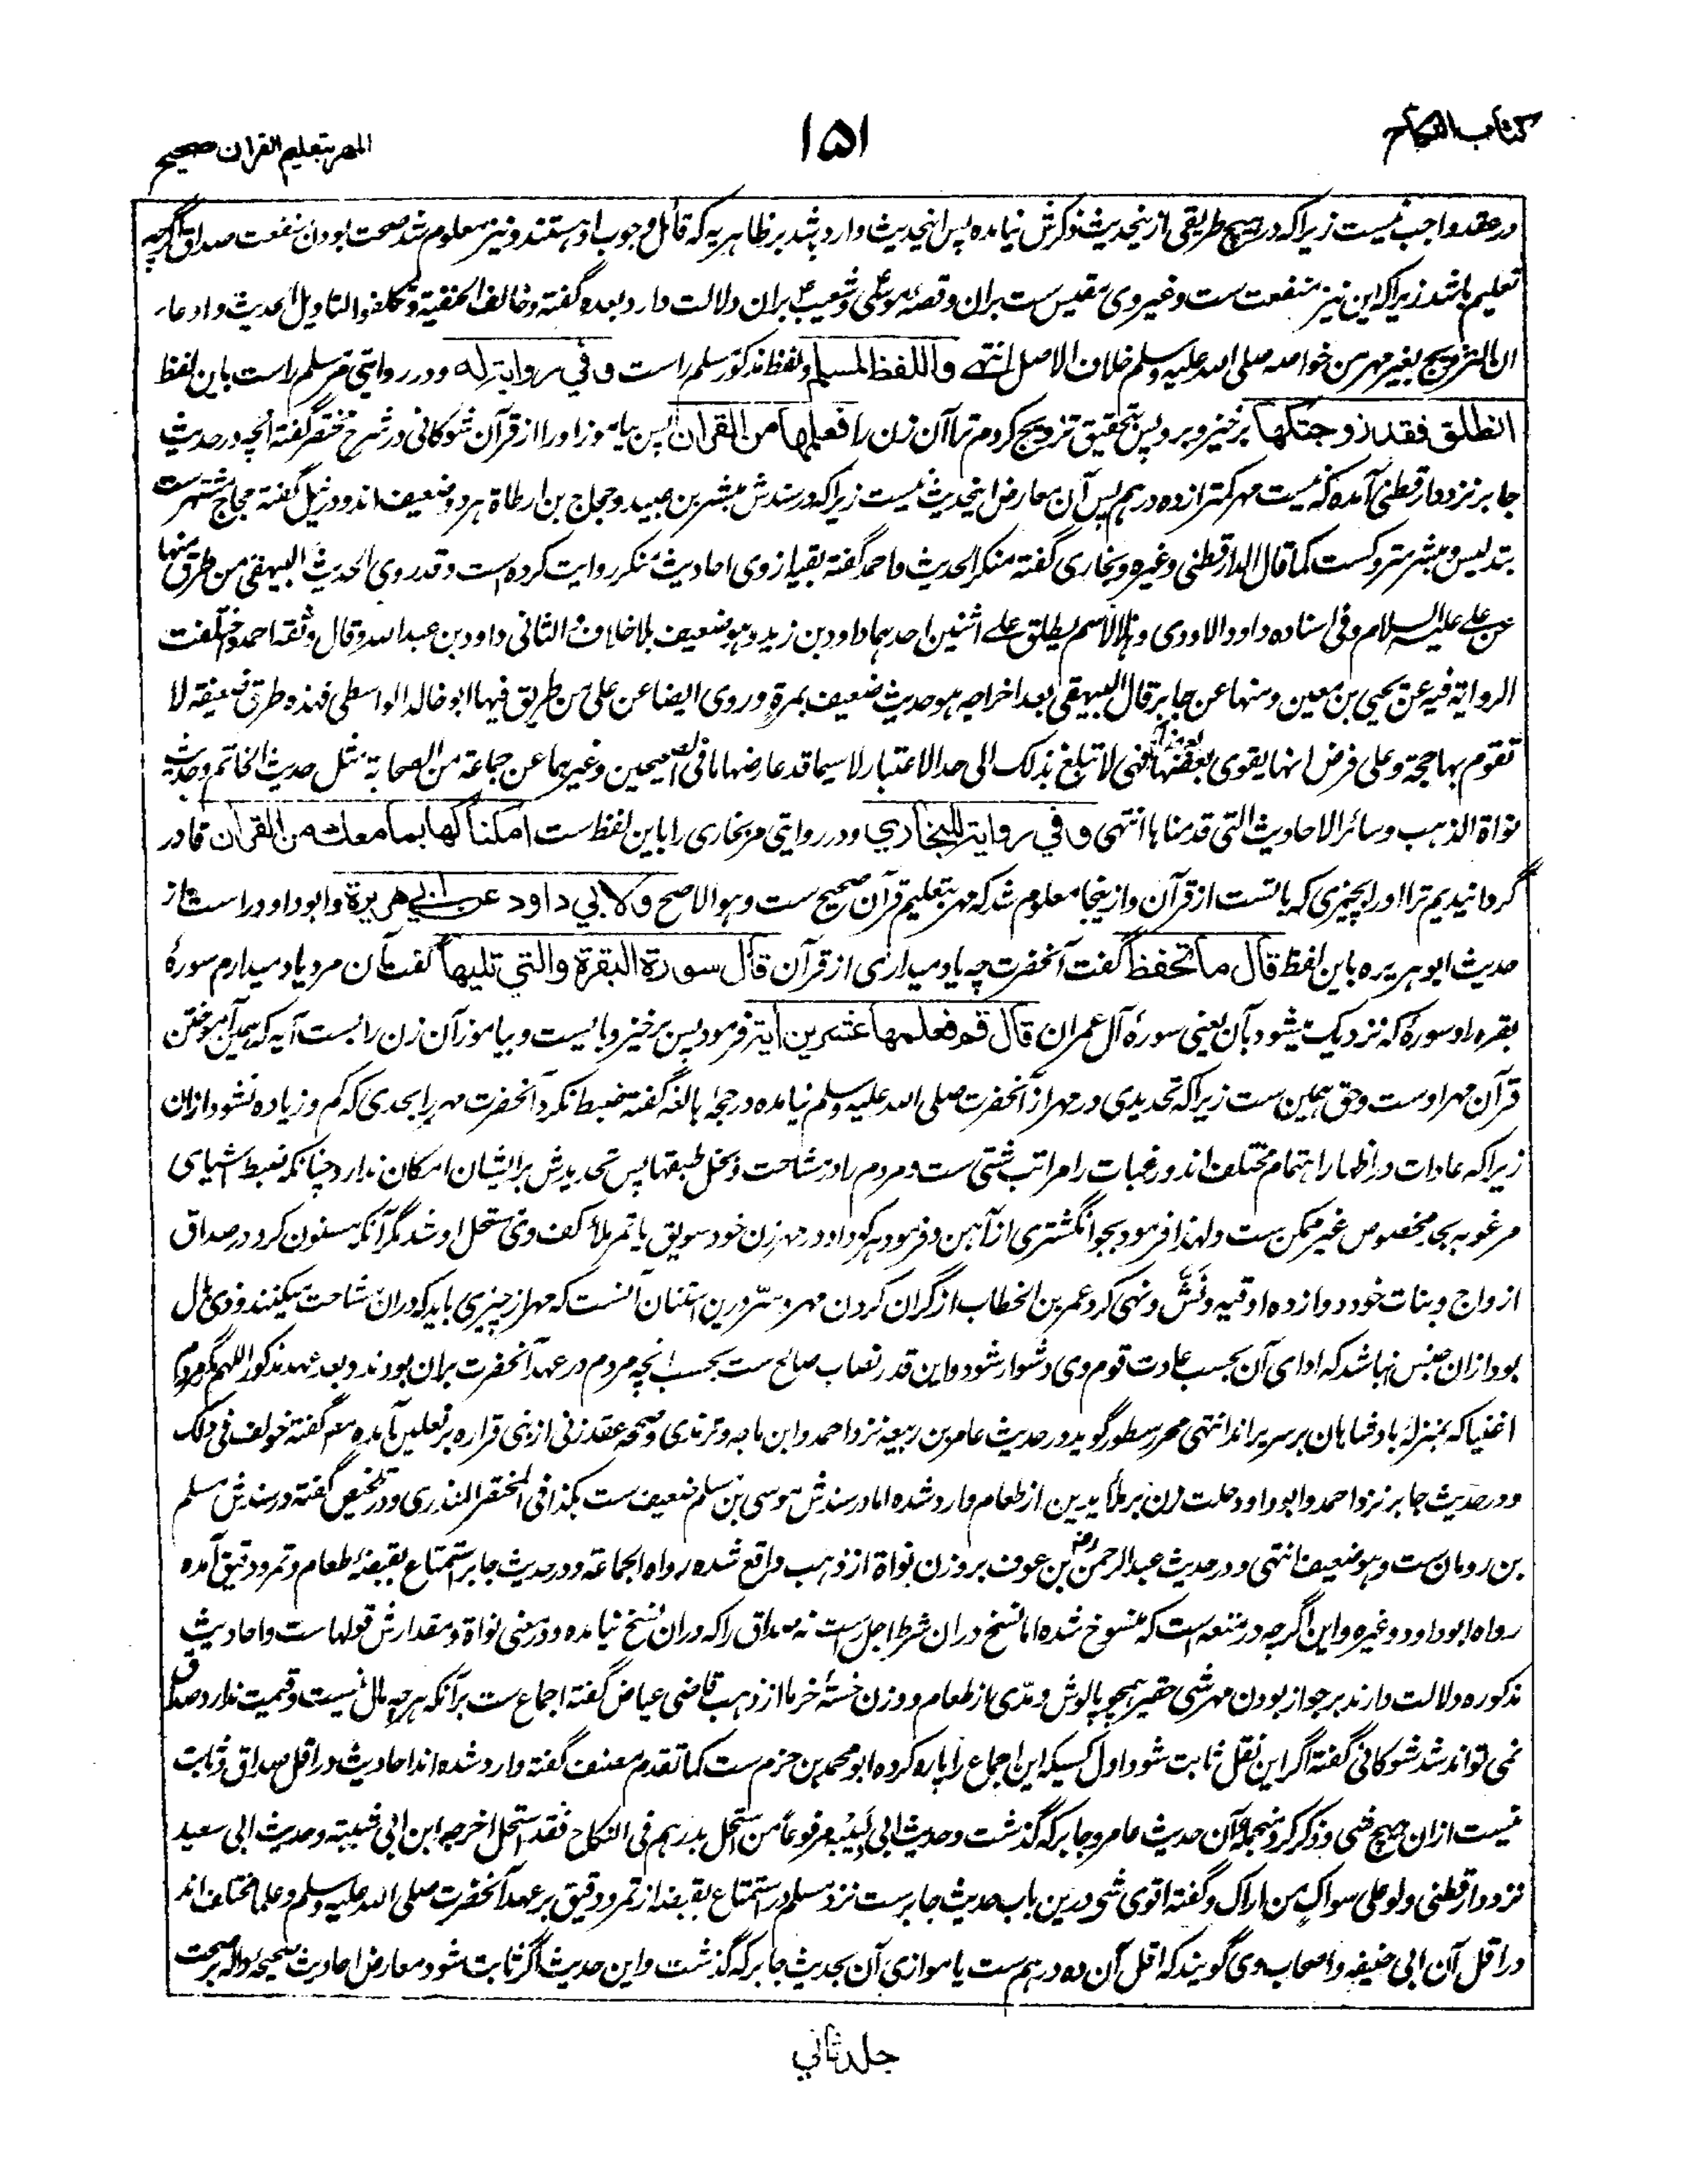 كتاب النكاح
۱۵۱
المهر بتعليم القران صحيح
در عقد واجب نیست زیرا که در هیچ طریقی از ینحدیث ذکرش نیامده پس اینحدیث وارد باشد بر ظاهریه که قائل وجوب او هستند و نیز معلوم شد صحت بودن منفعت صداق اگرچه
تعلیم باشد زیرا که این نیز منفعت ست و غیر وی مقیس ست بران و قصهٔ موسی و شعیب بران دلالت دارد بعده گفته و خالف الحنفیة و تکلفوا لتاویل الحدیث و ادعاء
ان التزویج بغیر مهر من خواصه صلی الله علیه وسلم خلاف الاصل انتهی واللفظ لمسلم و لفظ مذکور مسلم راست وفي رواية له و در روایتی مر مسلم راست باین لفظ
انطلق فقد زوجتكها برخیز و برو پس بتحقیق تزویج کردم ترا آن زن را فعلمها من القران پس بیاموز او را از قرآن شوکانی در شرح مختصر گفته آنچه در حدیث
جابر نزد دارقطنی آمده که نیست مهر کمتر از ده درهم پس آن معارض اینحدیث نیست زیرا که در سندش مبشر بن عبید و حجاج بن ارطاة هر دو ضعیف اند و در نیل گفته حجاج مشتهرست
بتدلیس و مبشر متروکست کما قال الدارقطنی و غیره و بخاری گفته منکر الحدیث و احمد گفته بقیه از وی احادیث منکر روایت کرده است و قد روی الحدیث البیهقی من طرق منها
عن علی علیه السلام و فی اسناده داود الاودی و هذا الاسم یطلق علی اثنین احدهما داود بن زید و هو ضعیف بلا خلاف و الثانی داود بن عبدالله و قال وثقه احمد و اختلفت
الروایة فیه عن یحیی بن معین و منها عن جابر قال البیهقی بعد اخراجه هو حدیث ضعیف بمرة و روی ایضا عن علی من طریق فیها ابو خالد الواسطی فهذه طرق ضعیفه لا
تقوم بها حجة و علی فرض انها یقوی بعضها بعضا فهی لا تبلغ بذلک الی حد الاعتبار لا سیما قد عارضها ما فی الصحیحین و غیرهما عن جماعة من الصحابة مثل حدیث الخاتم و حدیث
نواة الذهب و سائر الاحادیث التی قدمناها انتهی وفي رواية للبخاري و در روایتی مر بخاری را باین لفظ ست امكناكها بما معك من القران قادر
گردانیدیم ترا او را بچیزی که با تست از قرآن و از ینجا معلوم شد که مهر بتعلیم قرآن صحیح ست و هو الاصح ولابي داود عن ابي هريرة و ابوداود راست از
حدیث ابوهریره باین لفظ قال ما تحفظ گفت آنحضرت چه یاد میداری از قرآن قال سورة البقرة والتي تليها گفت آن مرد یاد میدارم سورهٔ
بقره را و سورهٔ که نزدیک میشود بآن یعنی سورهٔ آل عمران قال قم فعلمها عشرين اية فرمود پس برخیز و بایست و بیاموز آن زن را بست آیه که همین آموختن
قرآن مهر اوست و حق همین ست زیرا که تحدیدی در مهر از آنحضرت صلی الله علیه وسلم نیامده در حجة بالغه گفته ضبط نکرد آنحضرت مهر را بحدی که کم و زیاده نشود ازان
زیرا که عادات در اظهار اهتمام مختلف اند و رغبات را مراتب شتی ست و مردم را در مشاحت و بخل طبقها پس تحدیدش بر ایشان امکان ندارد چنانکه ضبط اشیای
مرغوبه بحد مخصوص غیر ممکن ست و لهذا فرمود بجو انگشتری از آهن و فرمود هر که داد در مهر زن خود سویق یا تمر ملأ کف وی مستحل او شد مگر آنکه مسنون کرد در صداق
ازواج و بنات خود دوازده اوقیه و نش و نهی کرد عمر بن الخطاب از گران کردن مهر و سر درین استنان آنست که مهر از چیزی باید که دران مشاحت میکنند و ذی بال
بود ازان جنس نباشد که ادای آن بحسب عادت قوم وی دشوار شود و این قدر نصاب صالح ست بحسب آنچه مردم در عهد آنحضرت بران بودند و بعد عهد مذکور اللهم مگر مردم
اغنیا که بمنزلهٔ بادشاهان بر سریر اند انتهی محرر سطور گوید و در حدیث عامر بن ربیعه نزد احمد و ابن ماجه و ترمذی و صححه عقد زنی از بنی فزاره بر نعلین آمده گفته خولف فی ذلک
و در حدیث جابر نزد احمد و ابوداود حلت زن بر ملأ یدین از طعام وارد شده اما در سندش موسی بن مسلم ضعیف ست هکذا فی المختصر المنذری و در تلخیص گفته در سندش مسلم
بن رومان ست و هو ضعیف انتهی و در حدیث عبدالرحمن بن عوف بر وزن نواة از ذهب واقع شده رواه الجماعة و در حدیث جابر استمتاع بقبضهٔ طعام و تمر و دقیق آمده
رواه ابوداود و غیره و این اگرچه در متعه است که منسوخ شده اما نسخ دران شرط اجل راست نه صداق را که دران نسخ نیامده و در معنی نواة و مقدارش قولها ست و احادیث
مذکوره دلالت دارند بر جواز بودن مهر شی حقیر همچو پاپوش و مدی از طعام و وزن خستهٔ خرما از ذهب قاضی عیاض گفته اجماع ست بر آنکه هرچه مال نیست و قیمت ندارد صداق
نمی تواند شد شوکانی گفته اگر این نقل ثابت شود اول کسیکه این اجماع را پاره کرده ابو محمد بن حزم ست کما تقدم مصنف گفته وارد شده اند احادیث در اقل صداق و ثابت
نیست ازان هیچ شی و ذکر کرد منجملهٔ آن حدیث عامر و جابر که گذشت و حدیث ابی لبیبه مرفوعا من استحل بدرهم فی النکاح فقد استحل اخرجه ابن ابی شیبة و حدیث ابی سعید
نزد دارقطنی و لو علی سواک من اراک و گفته اقوی شی درین باب حدیث جابر ست نزد مسلم در استمتاع بقبضه از تمر و دقیق بر عهد آنحضرت صلی الله علیه وسلم و علما مختلف اند
در اقل آن ابی حنیفه و اصحاب وی گویند که اقل آن ده درهم ست یا موازی آن بحدیث جابر که گذشت و این حدیث اگر ثابت شود معارض احادیث صحیحهٔ داله بر صحت
جلد ثاني